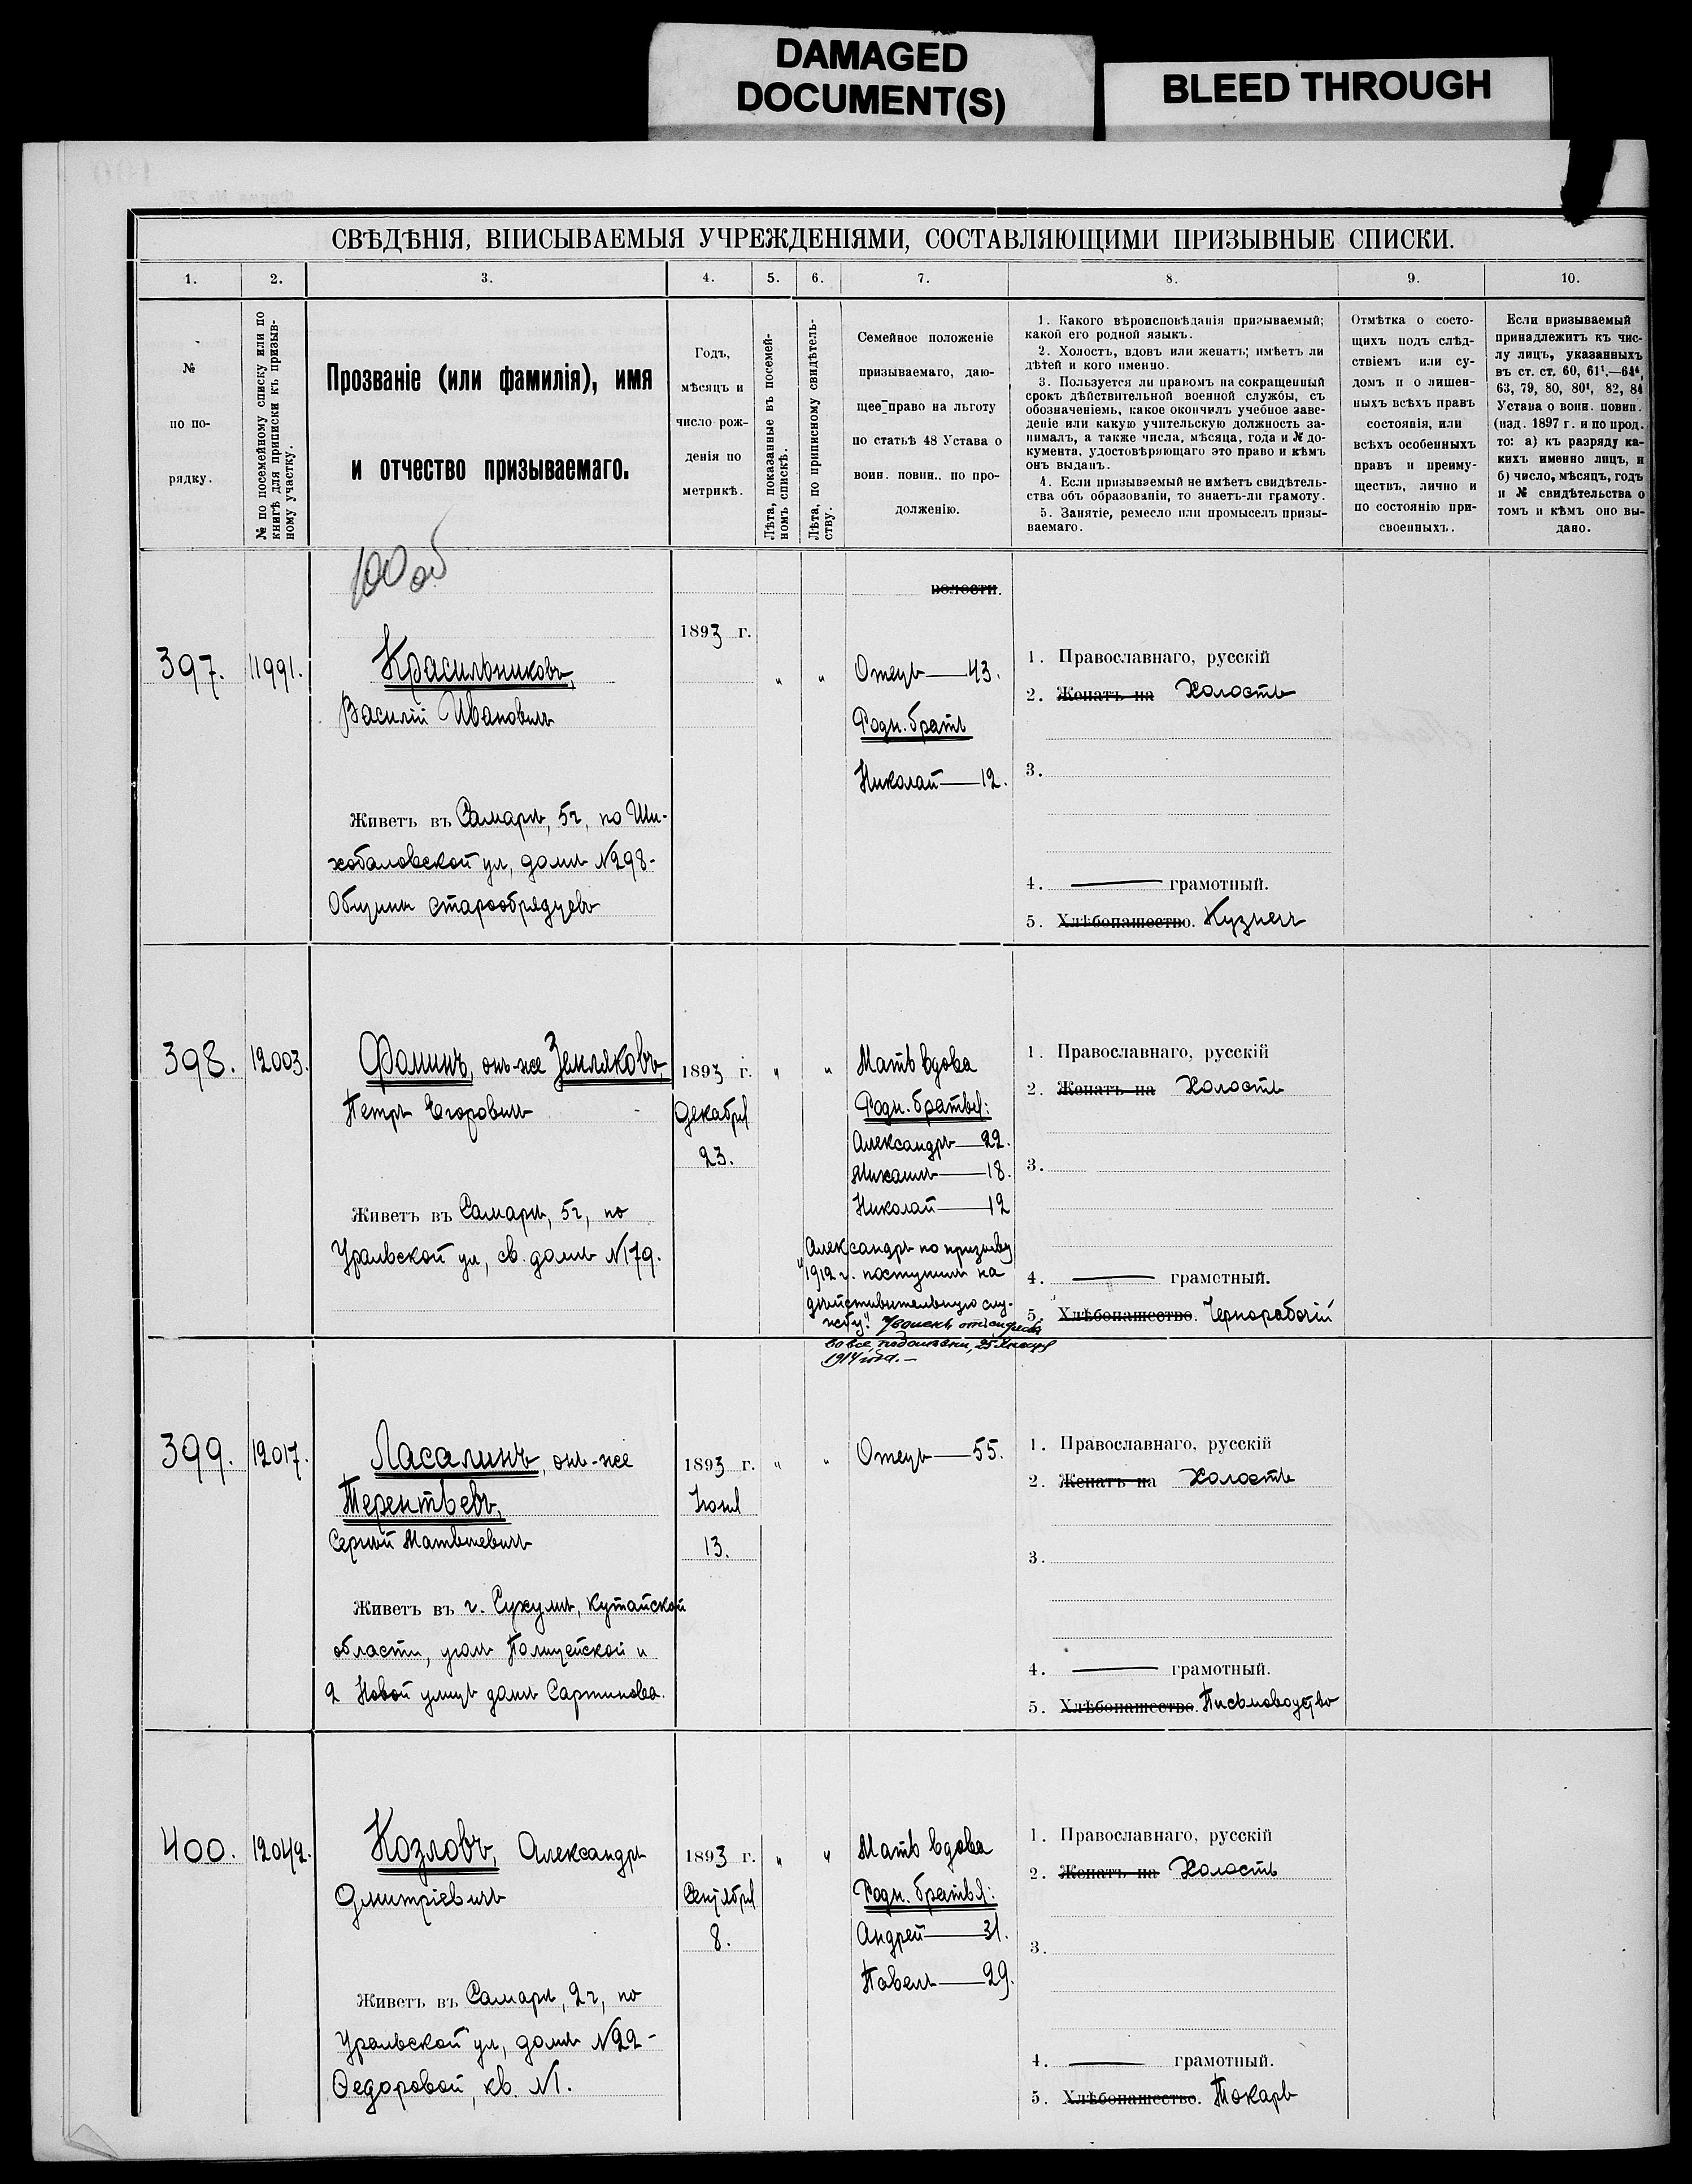 DAMAGED
DOCUMENT(S)
BLEED THROUGH
СВѢДѢНІЯ, ВПИСЫВАЕМЫЯ УЧРЕЖДЕНІЯМИ, СОСТАВЛЯЮЩИМИ ПРИЗЫВНЫЕ СПИСКИ.
1. 2. 3. 4. 5. 6. 7. 8. 9. 10.
№
по по-
рядку.
№ по посемейному списку или по
книгѣ для приписки къ призыв-
ному участку.
Прозваніе (или фамилія), имя
и отчество призываемаго.
Годъ,
мѣсяцъ и
число рож-
денія по
метрикѣ.
Лѣта, показанные въ посемей-
номъ спискѣ.
Лѣта, по приписному свидѣтель-
ству.
Семейное положеніе
призываемаго, даю-
щее право на льготу
по статьѣ 48 Устава о
воин. повин., по про-
долженію.
1. Какого вѣроисповѣданія призываемый;
какой его родной языкъ.
2. Холостъ, вдовъ или женатъ; имѣетъ ли
дѣтей и кого именно.
3. Пользуется ли правомъ на сокращенный
срокъ дѣйствительной военной службы, съ
обозначеніемъ, какое окончилъ учебное заве-
деніе или какую учительскую должность за-
нималъ, а также числа, мѣсяца, года и № до-
кумента, удостовѣряющаго это право и кѣмъ
онъ выданъ.
4. Если призываемый не имѣетъ свидѣтель-
ства объ образованіи, то знаетъ-ли грамоту.
5. Занятіе, ремесло или промыселъ призы-
ваемаго.
Отмѣтка о состо-
щихъ подъ слѣд-
ствіемъ или су-
домъ и о лишен-
ныхъ всѣхъ правъ
состоянія, или
всѣхъ особенныхъ
правъ и преиму-
ществъ, лично и
по состоянію при-
своенныхъ.
Если призываемый
принадлежитъ къ чис-
лу лицъ, указанныхъ
въ ст. ст. 60, 61¹.—64⁴,
63, 79, 80, 80¹, 82, 84
Устава о воин. повин.
(изд. 1897 г. и по прод.
то: а) къ разряду ка-
кихъ именно лицъ, и
б) число, мѣсяцъ, годъ
и № свидѣтельства о
томъ и кѣмъ оно вы-
дано.
100 об
волости.
397. 11991.
Красильниковъ,
Василій Ивановичъ
Живетъ въ Самарѣ, 5ч, по Ши-
хобаловской ул, домъ №298-
Общины старообрядцевъ
1893 г.
" "
Отецъ—43.
Родн. братъ
Николай—12.
1. Православнаго, русскій
2. Женатъ на Холостъ
3.
4. — грамотный.
5. Хлѣбопашество. Кузнецъ
398. 12003.
Фоминъ, онъ-же Земляковъ,
Петръ Егоровичъ
Живетъ въ Самарѣ, 5ч, по
Уральской ул, св. домъ №179.
1893 г.
Декабря
23.
" "
Мать вдова
Родн. братья:
Александръ—22.
Михаилъ—18.
Николай—12
Александръ по призыву
1912 г. поступилъ на
дѣйствительную слу-
жбу."
1914 года.—
1. Православнаго, русскій
2. Женатъ на Холостъ
3.
4. — грамотный.
5. Хлѣбопашество. Чернорабочій
399. 12017.
Ласалинъ, онъ-же
Терентьевъ,
Сергѣй Матвѣевичъ
Живетъ въ г. Сухумѣ, Кутайской
области, уголъ Полицейской и
2 Новой улицъ домъ Сартинова.
1893 г.
Іюля
13.
" "
Отецъ—55.
1. Православнаго, русскій
2. Женатъ на Холостъ
3.
4. — грамотный.
5. Хлѣбопашество. Письмоводство
400. 12042.
Козловъ, Александръ
Дмитріевичъ
Живетъ въ Самарѣ, 2ч, по
Уральской ул, домъ №22-
Ѳедоровой, кв. №1.
1893 г.
Сентября
8.
" "
Мать вдова
Родн. братья:
Андрей—31.
Павелъ—29.
1. Православнаго, русскій
2. Женатъ на Холостъ
3.
4. — грамотный.
5. Хлѣбопашество. Токарь